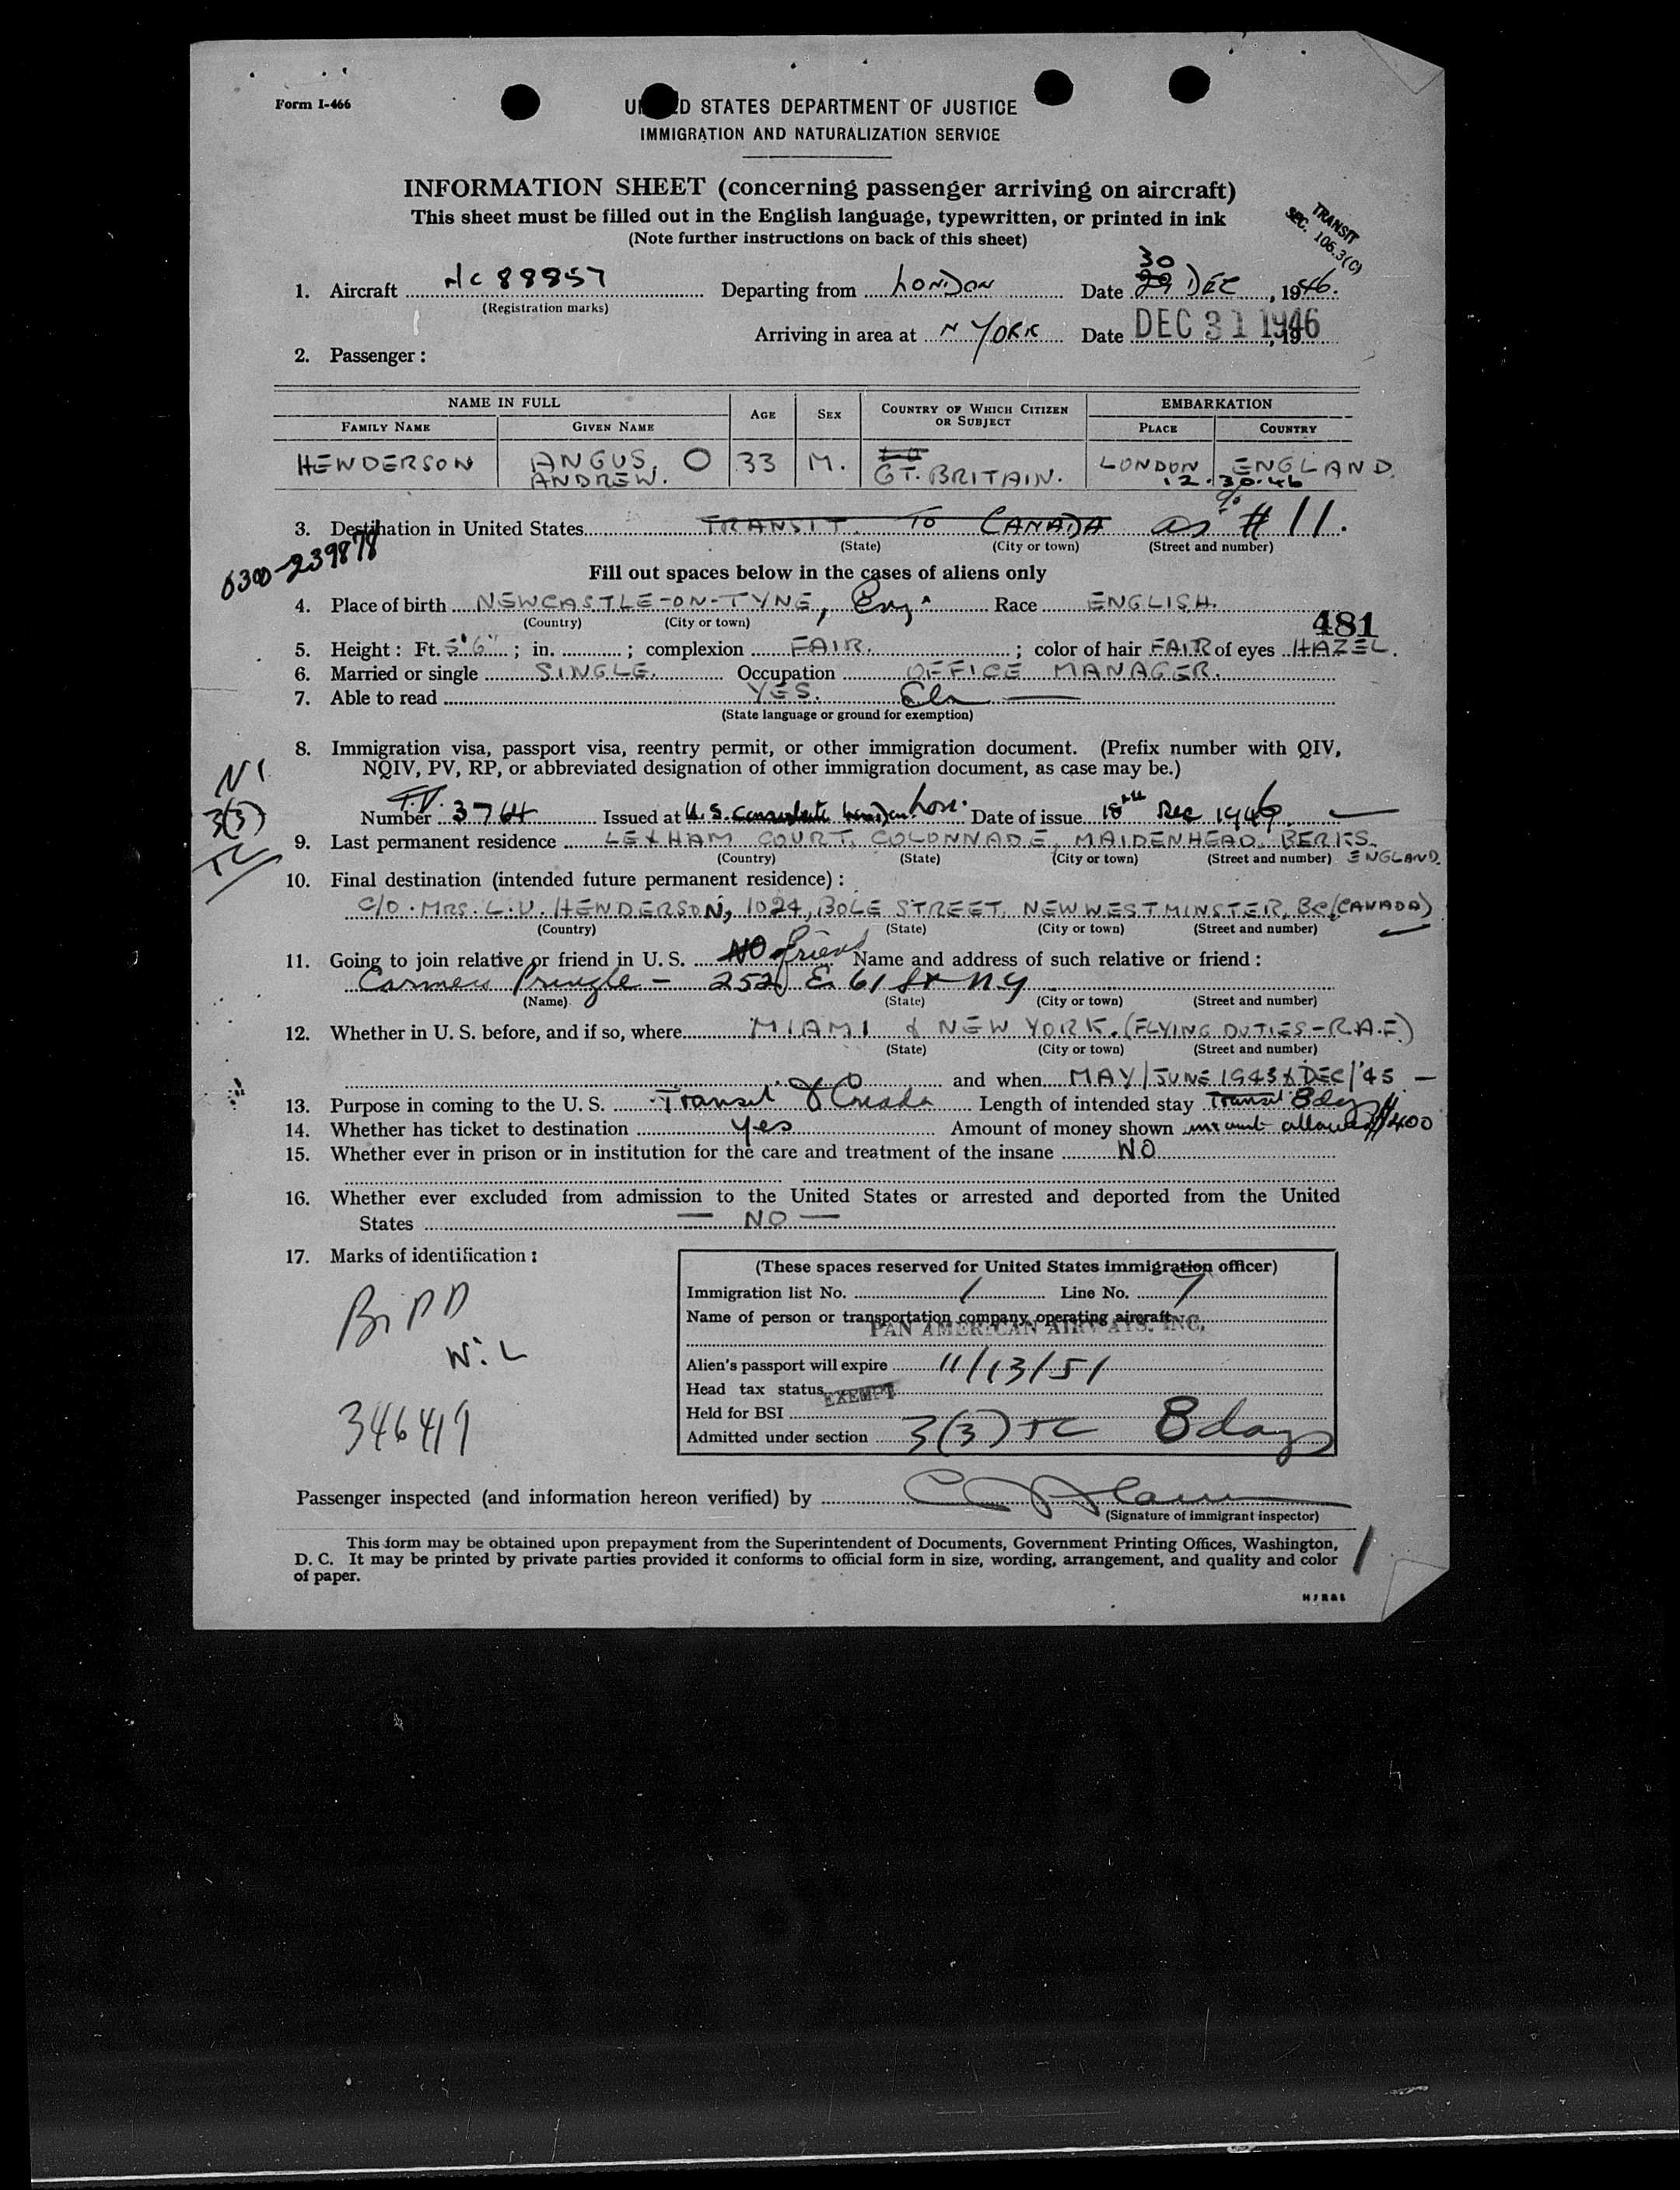 Form I-466
U D STATES DEPARTMENT OF JUSTICE
IMMIGRATION AND NATURALIZATION SERVICE
INFORMATION SHEET (concerning passenger arriving on aircraft)
This sheet must be filled out in the English language, typewritten, or printed in ink
(Note further instructions on back of this sheet)
TRANSIT
SEC. 105.3(C)
30
1. Aircraft NC 88857 Departing from LONDON Date 29 DEC, 1946.
(Registration marks)
Arriving in area at N YORK Date DEC 31 1946, 19
2. Passenger:
NAME IN FULL AGE SEX COUNTRY OF WHICH CITIZEN OR SUBJECT EMBARKATION
FAMILY NAME GIVEN NAME PLACE COUNTRY
HENDERSON ANGUS, O 33 M. GT. BRITAIN. LONDON ENGLAND.
ANDREW. 12.30.46
3. Destination in United States TRANSIT TO CANADA as # 11.
(State) (City or town) (Street and number)
0300-239878
Fill out spaces below in the cases of aliens only
4. Place of birth NEWCASTLE-ON-TYNE, Eng. Race ENGLISH.
(Country) (City or town)
481
5. Height: Ft. 5'6"; in. ; complexion FAIR. ; color of hair FAIR of eyes HAZEL.
6. Married or single SINGLE. Occupation OFFICE MANAGER.
7. Able to read YES.
(State language or ground for exemption)
8. Immigration visa, passport visa, reentry permit, or other immigration document. (Prefix number with QIV,
NQIV, PV, RP, or abbreviated designation of other immigration document, as case may be.)
3(3)
TC
Number 3764 Issued at U.S. Consulate London Lon. Date of issue 18th Dec 1946
9. Last permanent residence LEXHAM COURT, COLONNADE, MAIDENHEAD. BERKS.
(Country) (State) (City or town) (Street and number) ENGLAND.
10. Final destination (intended future permanent residence):
C/O. MRS. L.V. HENDERSON, 1024, BOLE STREET, NEW WESTMINSTER, BC (CANADA)
(Country) (State) (City or town) (Street and number)
11. Going to join relative or friend in U. S. NO friend Name and address of such relative or friend:
Carmen Pringle - 252 E 61 St NY
(Name) (State) (City or town) (Street and number)
12. Whether in U. S. before, and if so, where MIAMI & NEW YORK. (FLYING DUTIES - R.A.F.)
(State) (City or town) (Street and number)
and when MAY/JUNE 1943 & DEC/'45 -
13. Purpose in coming to the U. S. Transit to Canada Length of intended stay Transit 8 days
14. Whether has ticket to destination Yes Amount of money shown allowed $400
15. Whether ever in prison or in institution for the care and treatment of the insane NO
16. Whether ever excluded from admission to the United States or arrested and deported from the United
States — NO —
17. Marks of identification:
346419
(These spaces reserved for United States immigration officer)
Immigration list No. 1 Line No. 7
Name of person or transportation company operating aircraft
PAN AMERICAN AIRWAYS, INC.
Alien's passport will expire 11/13/51
Head tax status EXEMPT
Held for BSI
Admitted under section 3(3) TC 8 days
Passenger inspected (and information hereon verified) by
(Signature of immigrant inspector)
This form may be obtained upon prepayment from the Superintendent of Documents, Government Printing Offices, Washington,
D. C. It may be printed by private parties provided it conforms to official form in size, wording, arrangement, and quality and color
of paper.